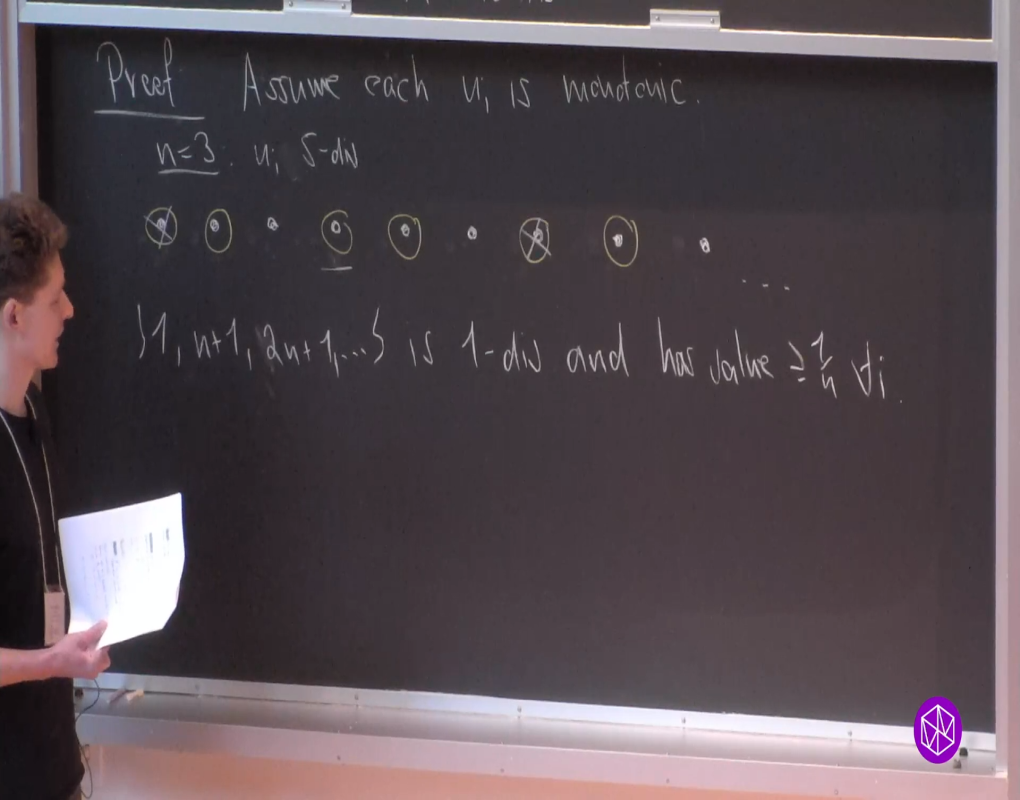 Proof Assume each u_i is monotonic.
n=3: u_i 5-div
...
}1, n+1, 2n+1, ...} is 1-div and has value ≥ 1/n ∀i.